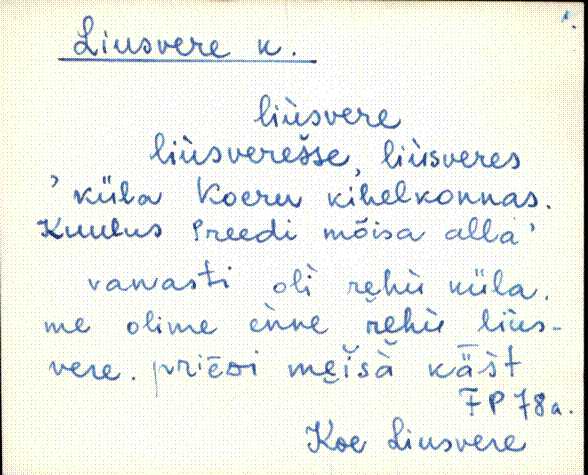 1.
Liusvere k.
liùsvere
liùsverešse, liùsveres
'küla Koeru kihelkonnas.
Kuulus Preedi mõisa alla'
vanasti oli rehù küla.
me olime enne rehù liùs-
vere. priēdi meišà käšt
FP 78a.
Koe Liusvere